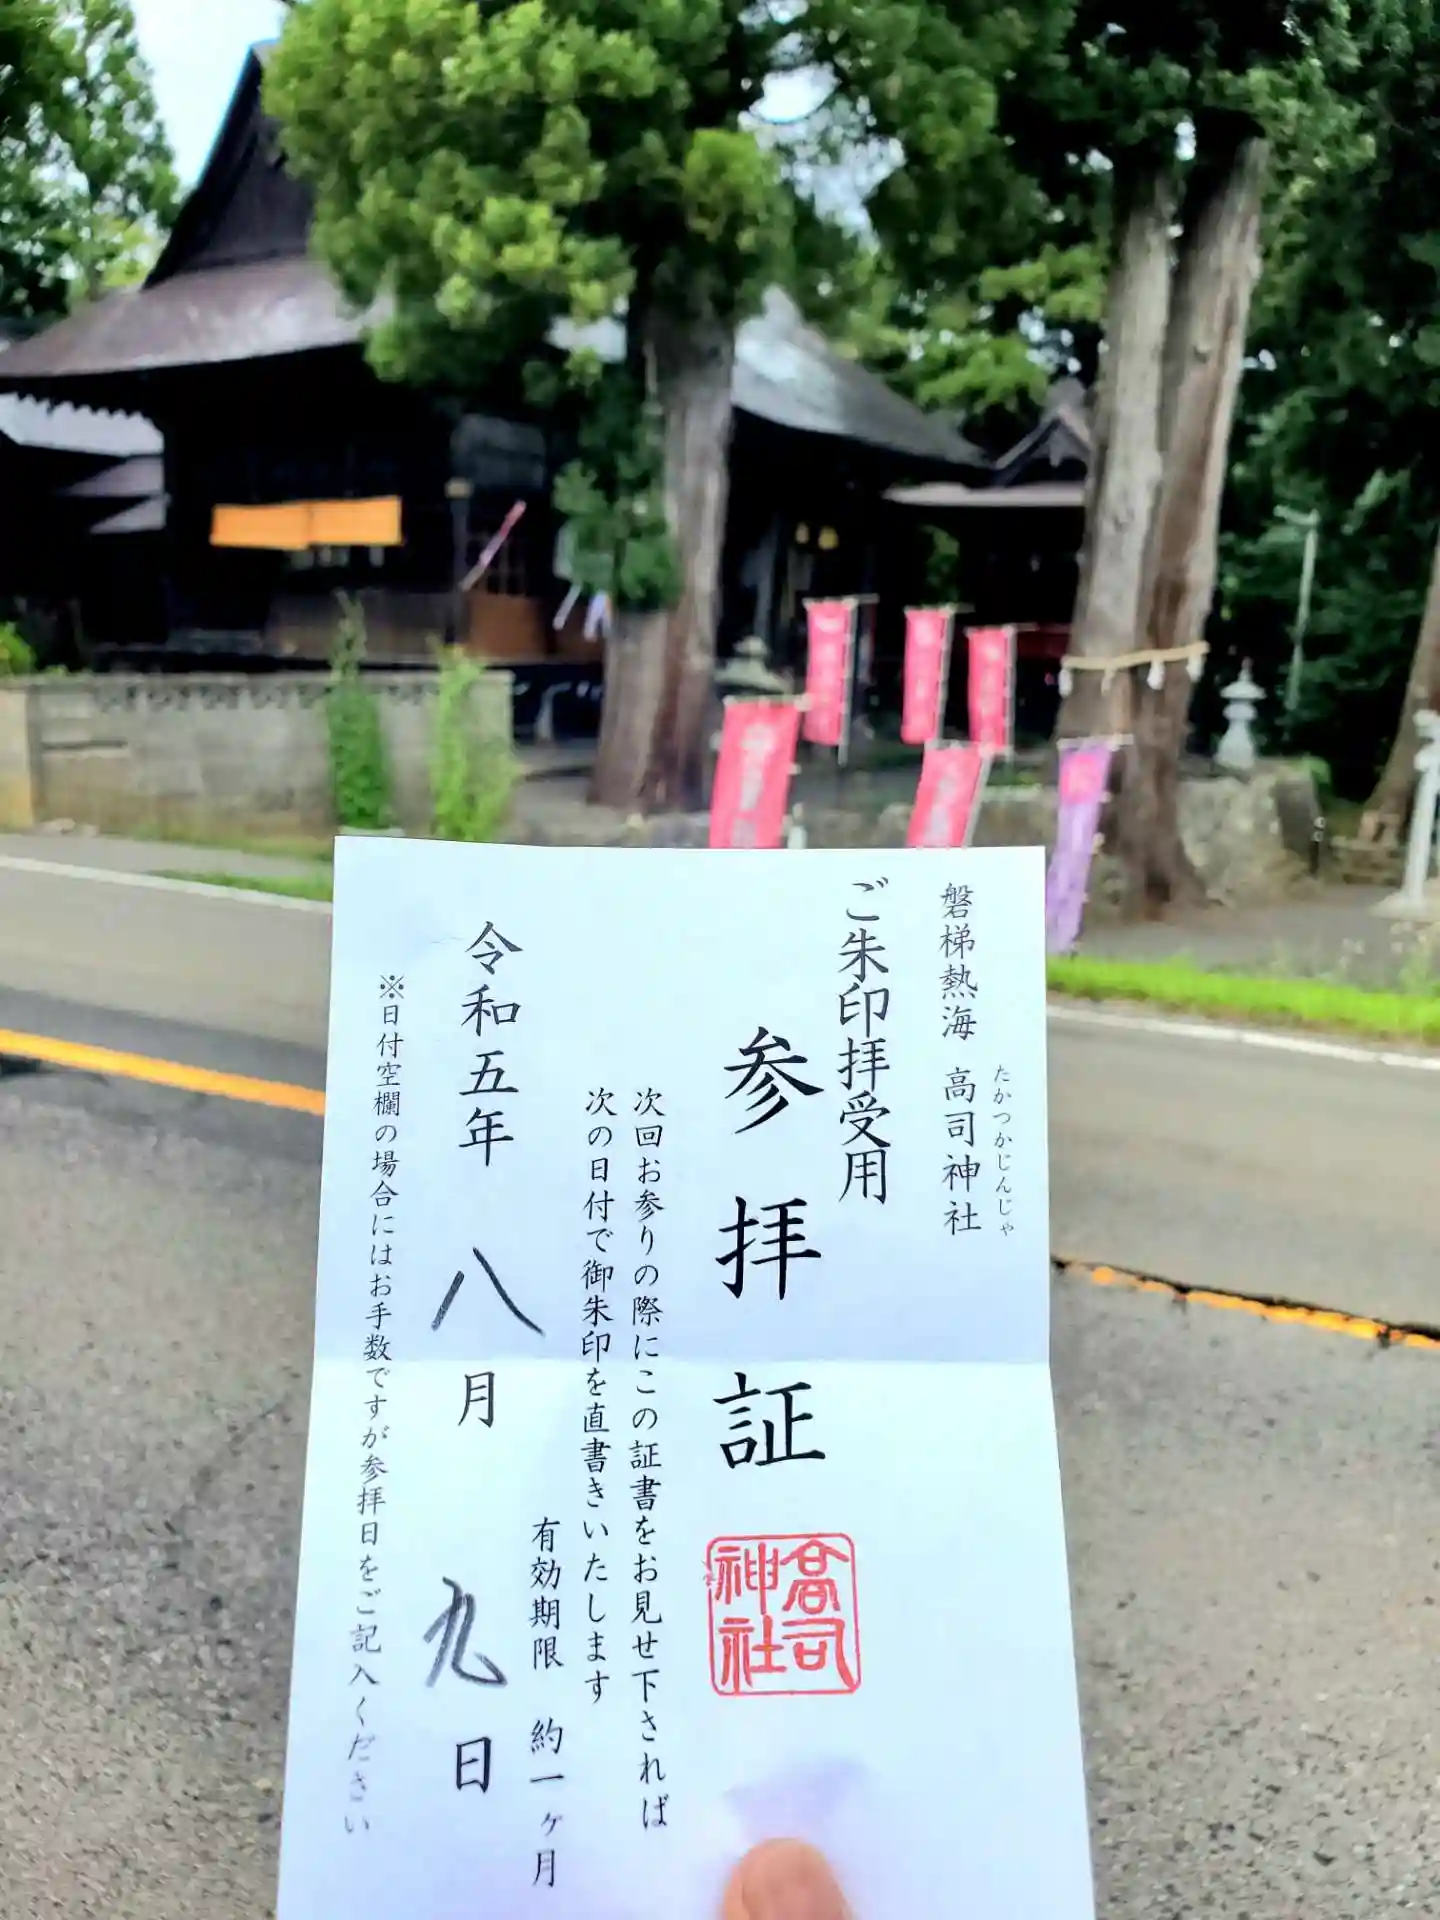 磐梯熱海 高司神社
たかつかじんじゃ
ご朱印拝受用
参拝証
高司神社
次回お参りの際にこの証書をお見せ下されば
次の日付で御朱印を直書きいたします
有効期限 約一ヶ月
令和五年 八月 九日
※日付空欄の場合にはお手数ですが参拝日をご記入ください